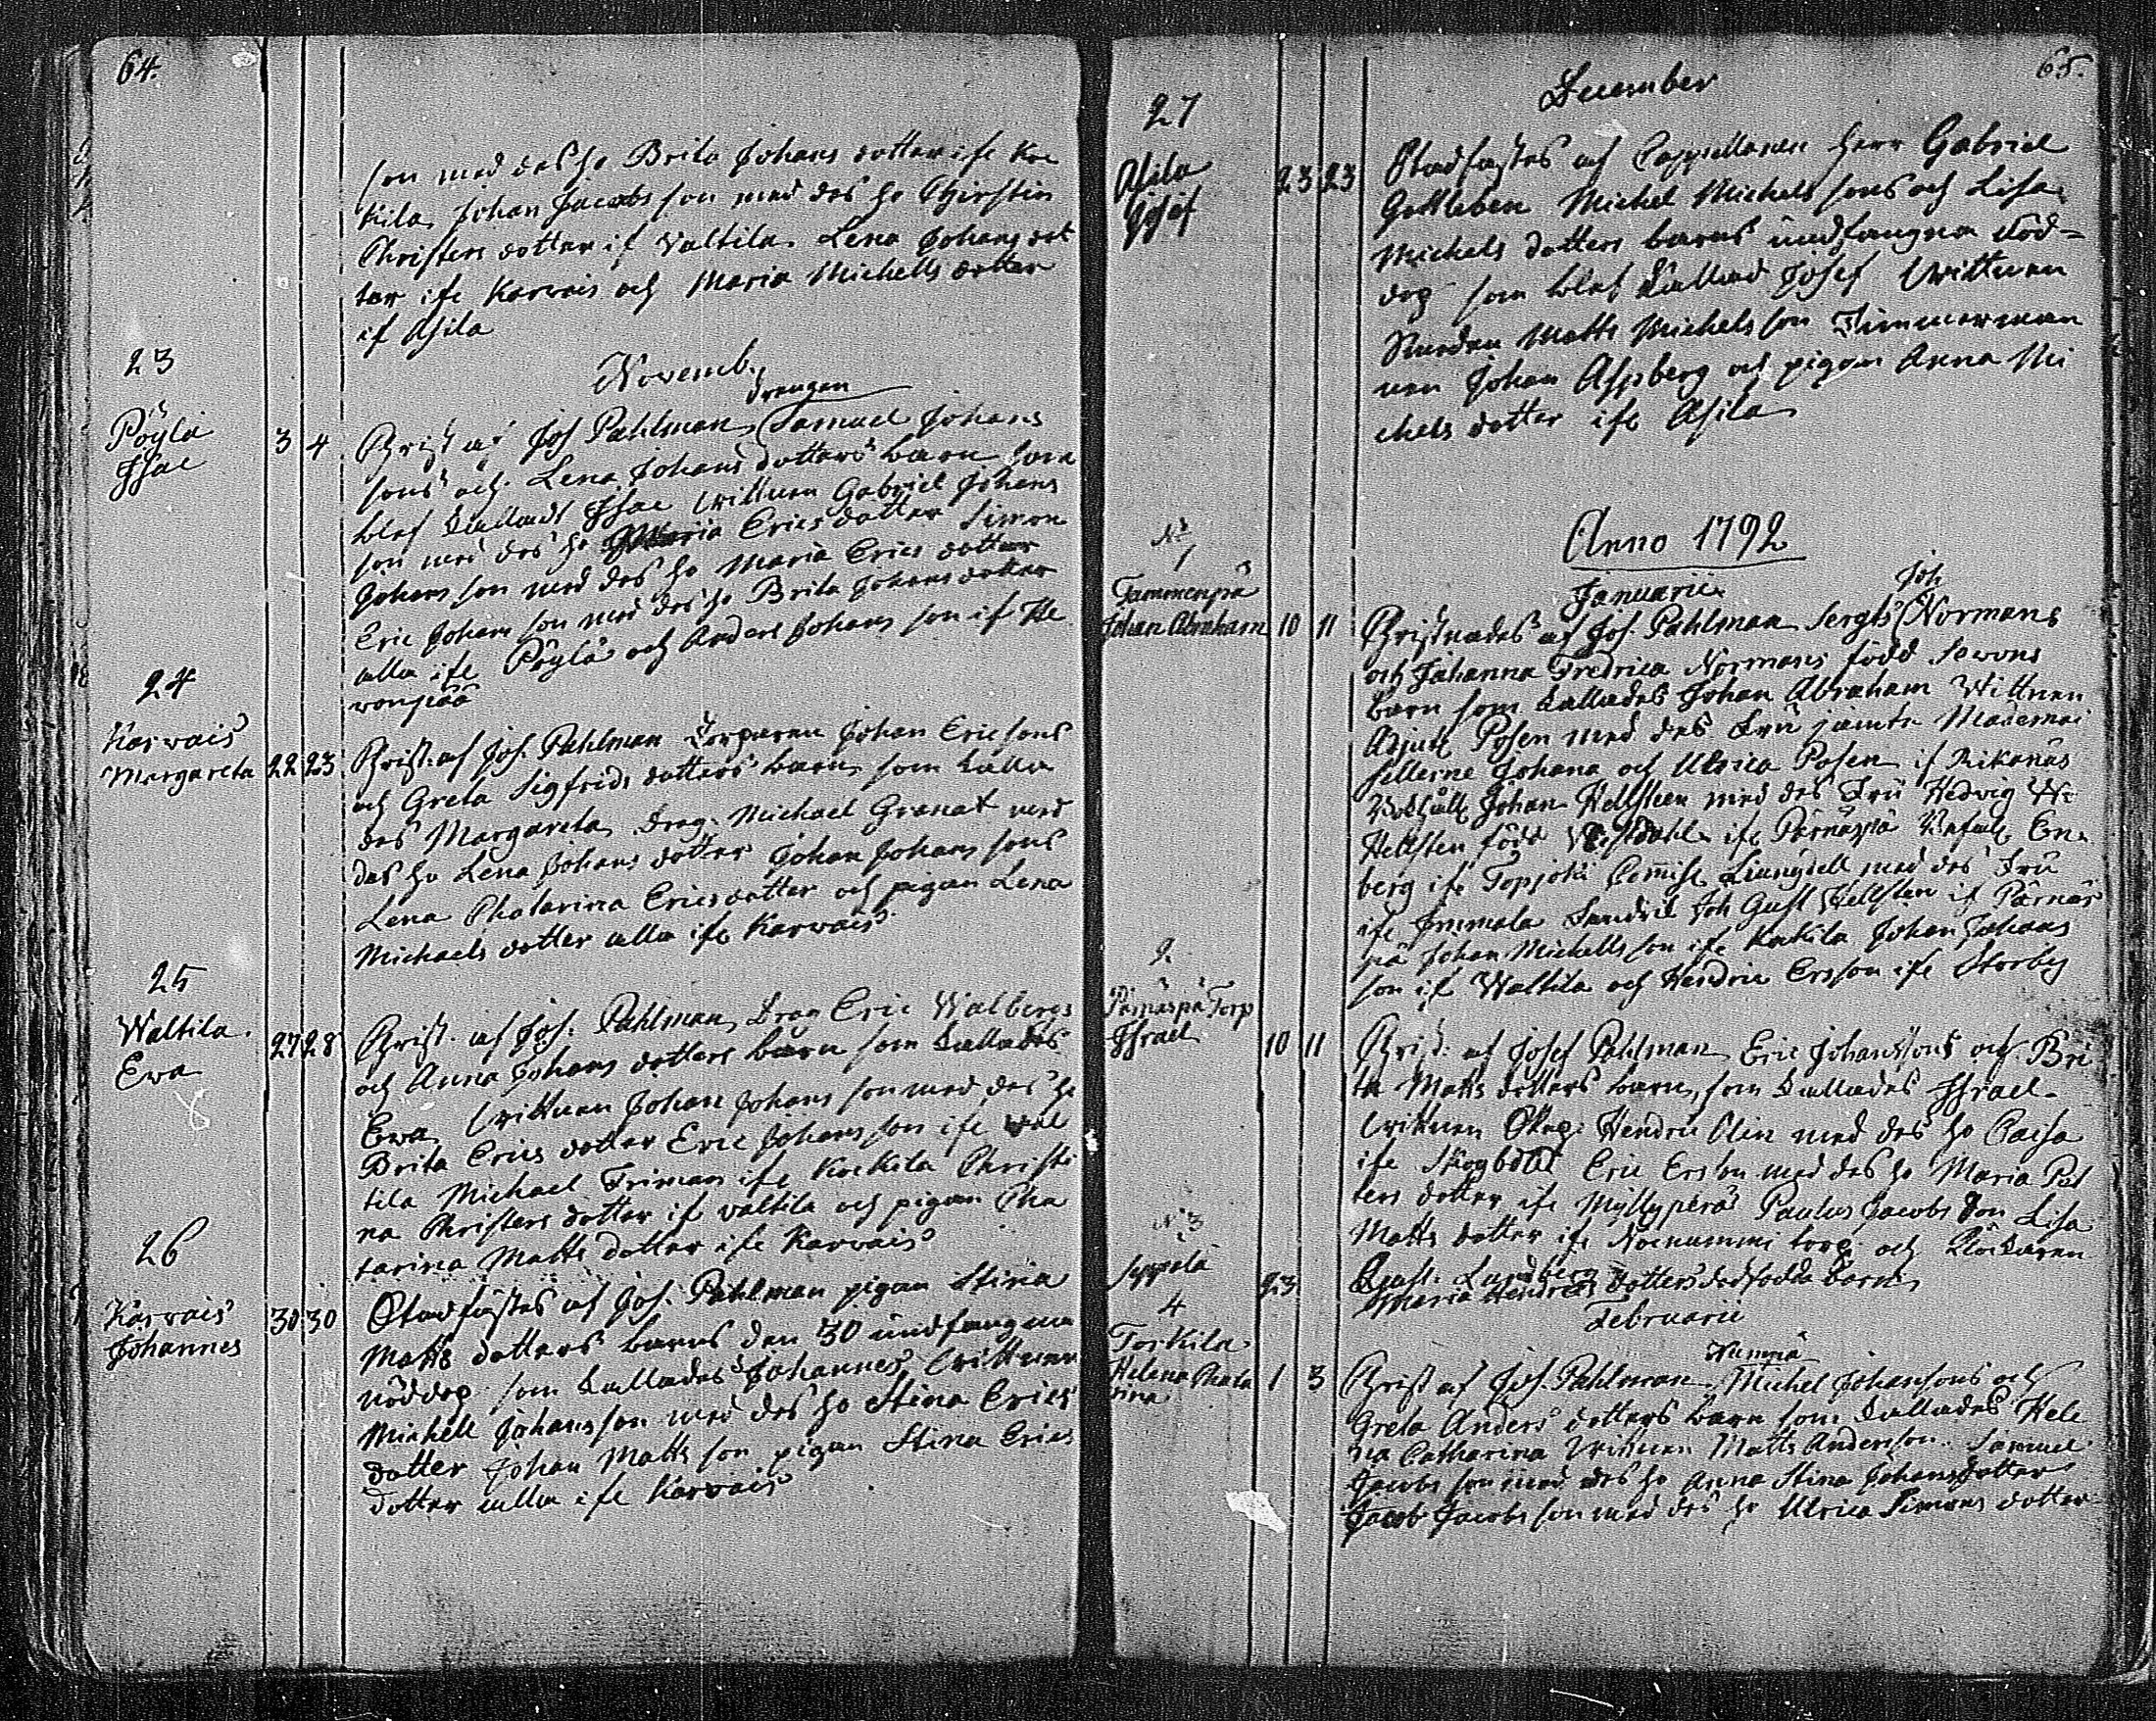 64.
son med des h. Brita Johans dotter ifr. Koc
kila, Johan Jacobs son med des h. Chirstin
Christers dotter if Valtila. Lena Johans dot
ter ifr Karvais och Maria Michells dotter
if Asila
Novemb.
23
drengen
Pöylä
Isac
3 4
Christ af Jos Pahlman, Samuel Johans
sons och Lena Johans dotters barn som
blef kallad Isac Wittnen Gabriel Johans
son med des h. Maria Ericsdotter Simon
Johans son med des h. Maria Erics dotter
Eric Johans son med des h. Brita Johans dotter
alla ifr Pöylä och Anders Johans son if
24
Karvais
Margareta
22 23
Christ. af Jos. Pahlman Torparen Johan Ericsons
och Greta Sigfrids dotters barn, som kalla
des Margareta, Drag. Michael Granat med
des h. Lena Johans dotter Johan Johans sons
Lena Chatarina Ericsdotter och pigan Lena
Michaels dotter alla ifr Karvais
25
Waltila.
Ewa
27 28
Christ. af Jos. Pahlman, Drag Eric Walbergs
och Anna Johans dotters barn som kallades
Ewa, Wittnen Johan Johans son med des h.
Brita Erics dotter Eric Johans son ifr Wal
tila Michael Friman ifr Kockila Christi
na Christers dotter if valtila och pigan Cha
tarina Matts dotter ifr Karvais
26
Karvais
Johannes
30 30
Stadfästes af Jos. Pahlman pigan Stina
Matts dotters barns den 30 undfangna
nöddop som kallades Johannes Wittnen
Michell Johansson med des h. Stina Erics
dotter Johan Matts son pigan Stina Erics
dotter alla ifr Karvais
65.
December
27
Asila
Josef
23 23
Stadfästes af Cappellanen Herr Gabriel
Gottleben Michel Michels sons och Lisa
Michels dotters barns undfangna nöd=
dop som blef kallad Josef Wittnen
Matts Michels son Timmerman
nen Johan Aspberg och pigan Anna Mi
chels dotter ifr Asila
Anno 1792
Januarii
No
1
Tammenpä
Johan Abraham
10 11
Joh
Christnades af Jos. Pahlman Sergts Normans
och Johanna Fredrica Normans född
barn som kallades Johan Abraham Wittnen
Adjut. Posen med des Fru jämte Mademoi
sellerne Johana och Ulrica Posen if Rikonäs
Johan Hellsten med des Fru Hedvig
Hellsten född ifr Pärnäspä En
berg ifr Topjoki Commiss. Liungdell med des Fru
ifr Immola Joh Gust Hellsten if Pärnäs
pä Johan Michells son ifr Kockila Johan Johans
son if Waltila och Hendric Ersson ifr Storby
2
Pärnäspä Torp
Israel
10 11
Christ. af Josef Pahlman, Eric Johanssons och Bri
ta Matts dotters barn, som kallades Israel.
Wittnen Hendric Olin med des h. Caisa
ifr Skogböle Eric Ersson med des h. Maria Pet
ters dotter ifr Myllyperä Paulus Jacobs son Lisa
Matts dotter ifr Noenummi torp och Klockaren
Gust. Lundberg
No 3
Seppelä
23
Maria Hendrics dotters dödfödda barn
Februarii
4
Torkila
Helena Chata
rina
1 3
Nummä
Christ af Jos. Pahlman, Michel Johansons och
Greta Anders dotters barn som kallades Hele
na Catharina Wittnen Matts Andersson. Samuel
Jacobs son med des h. Anna Stina Johans dotter
Jacob Jacobs son med des h. Ulrica Simons dotter